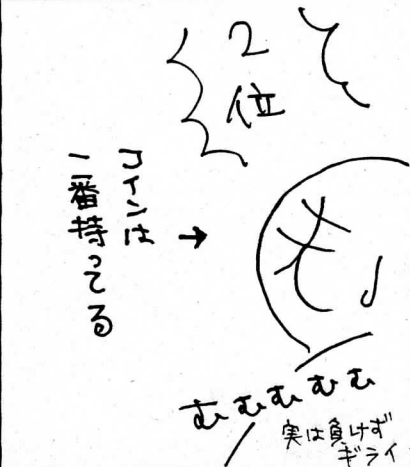 2
位
コインは
一番持ってる
→
むむむむむ
実は負けず
ギライ